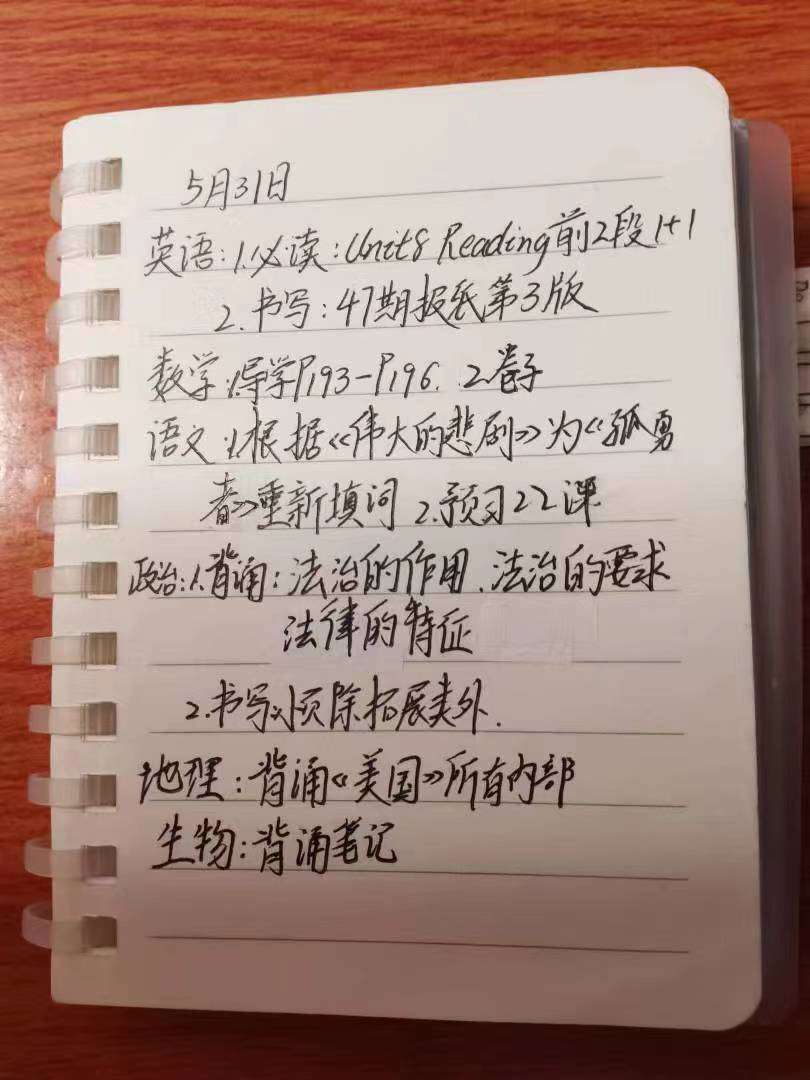 5月31日
英语:1.必读:Unit8 Reading前2段1+1
2.书写:47期报纸第3版
数学:1.导学P193-P196. 2.卷子
语文:1.根据《伟大的悲剧》为《孤勇
者》重新填词 2.预习22课
政治:1.背诵:法治的作用、法治的要求
法律的特征
2.书写:小顶除拓展类外.
地理:背诵《美国》所有内部
生物:背诵笔记